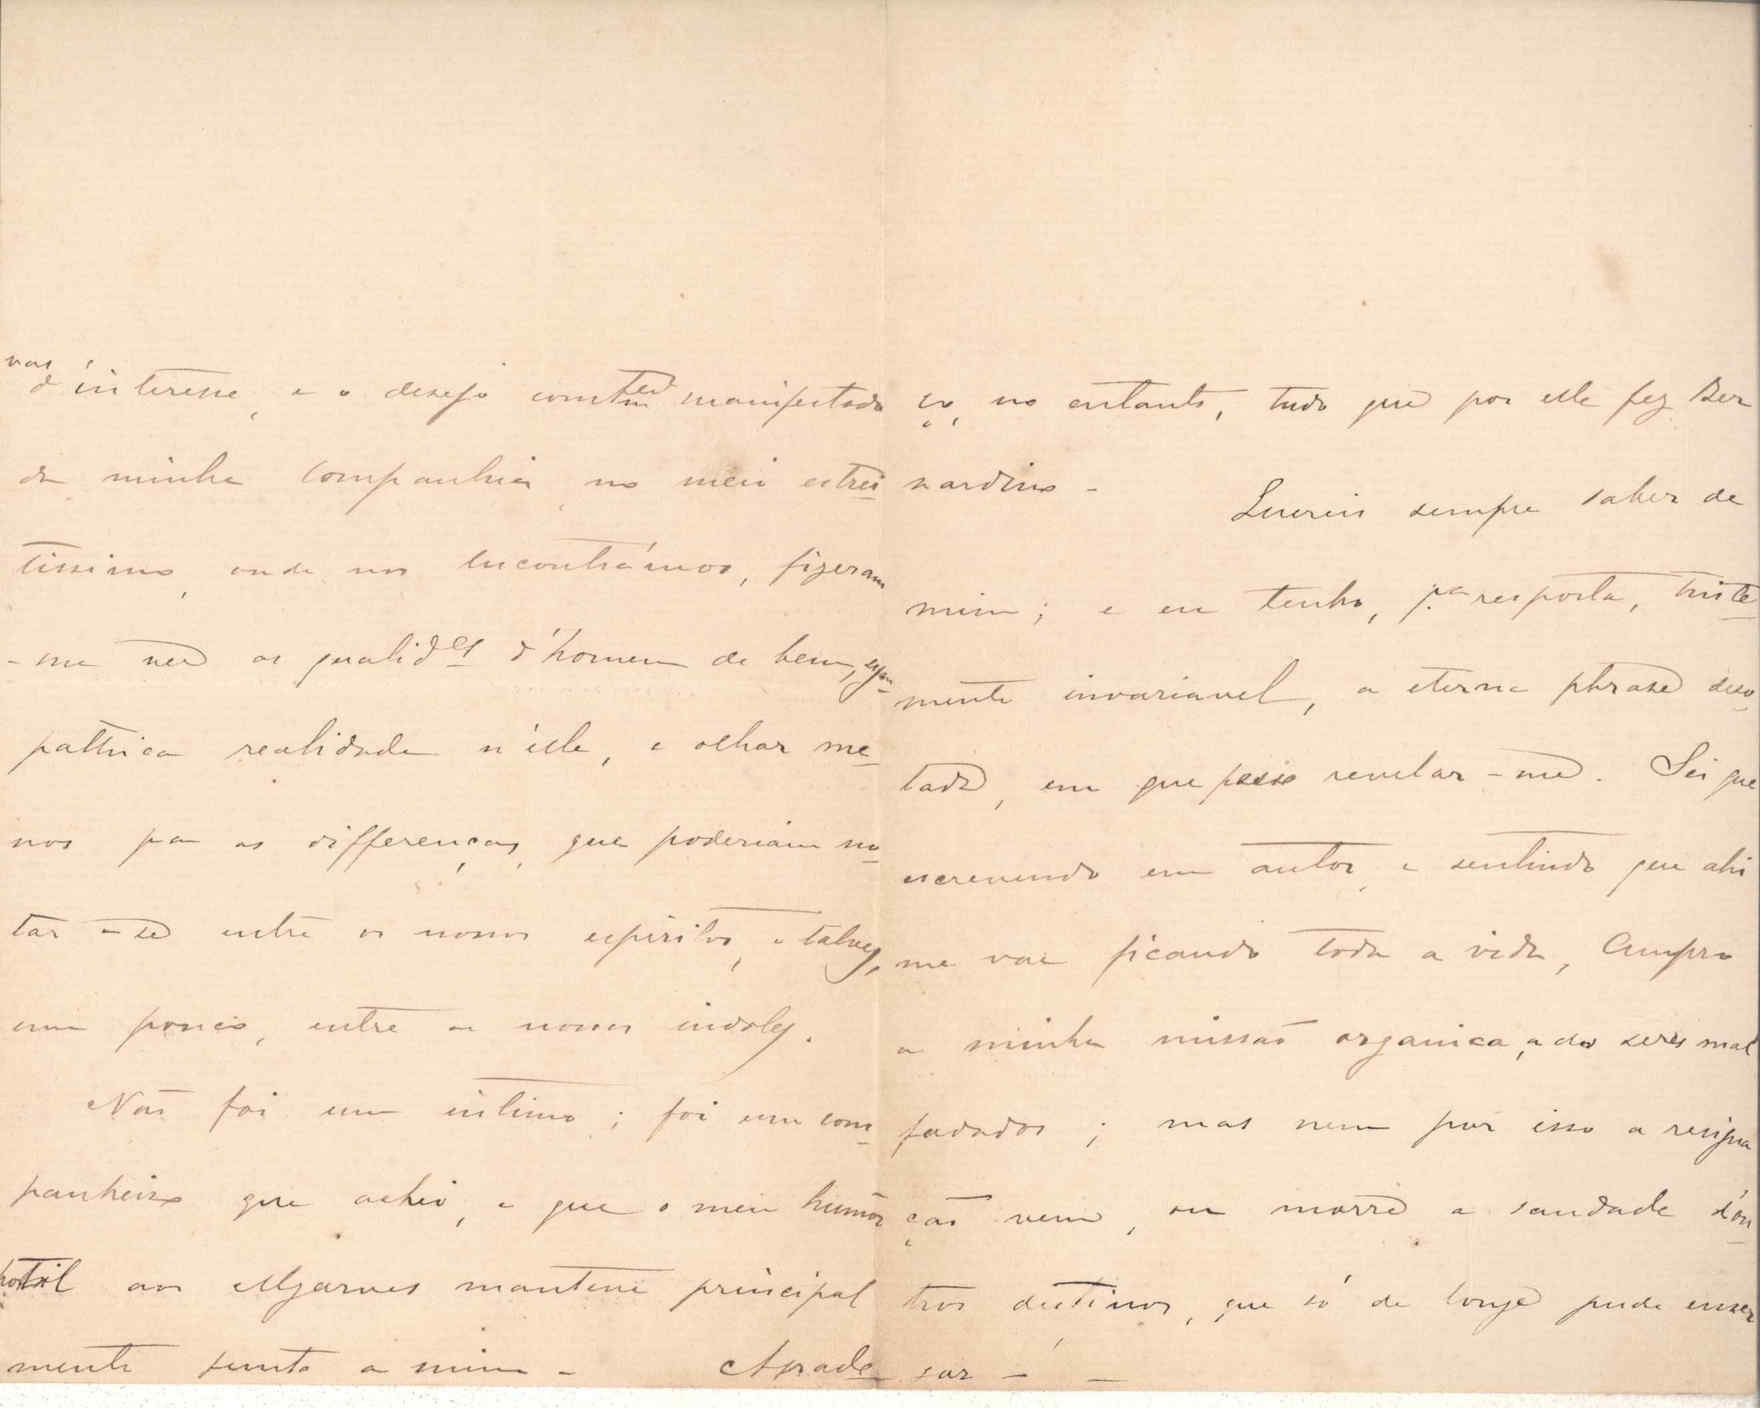 vas
d'interesse, e o desejo constem.te manifestado
da minha companhia no meio estrei
tissimo, onde nos encontrámos, fizeram
-me ver as qualid.es d'homem de bem, sym
pathica realidade n'elle, e olhar me
nos pa as differenças, que poderiam no
tar-se entre os nossos espiritos, e talvez,
um pouco, entre as nossas indoles.
Não foi um intimo; foi um com
panheiro que achei, e que o meu humor
hostil aos Algarves manteve principal
mente junto a mim - Agrade
ço, no entanto, tudo que por elle fez Ber
nardino -
Quereis sempre saber de
mim; e eu tenho, p.a resposta, triste
mente invariavel, a eterna phrase
em que posso revelar-me. Sei que
escrevendo em autos, e sentindo que ahi
me vae ficando toda a vida, cumpro
a minha missão organica, a dos seres mal
fadados; mas nem por isso a resigna
ção vem, ou morre a saudade d'ou
tros destinos, que só de longe pude enxer
gar - -